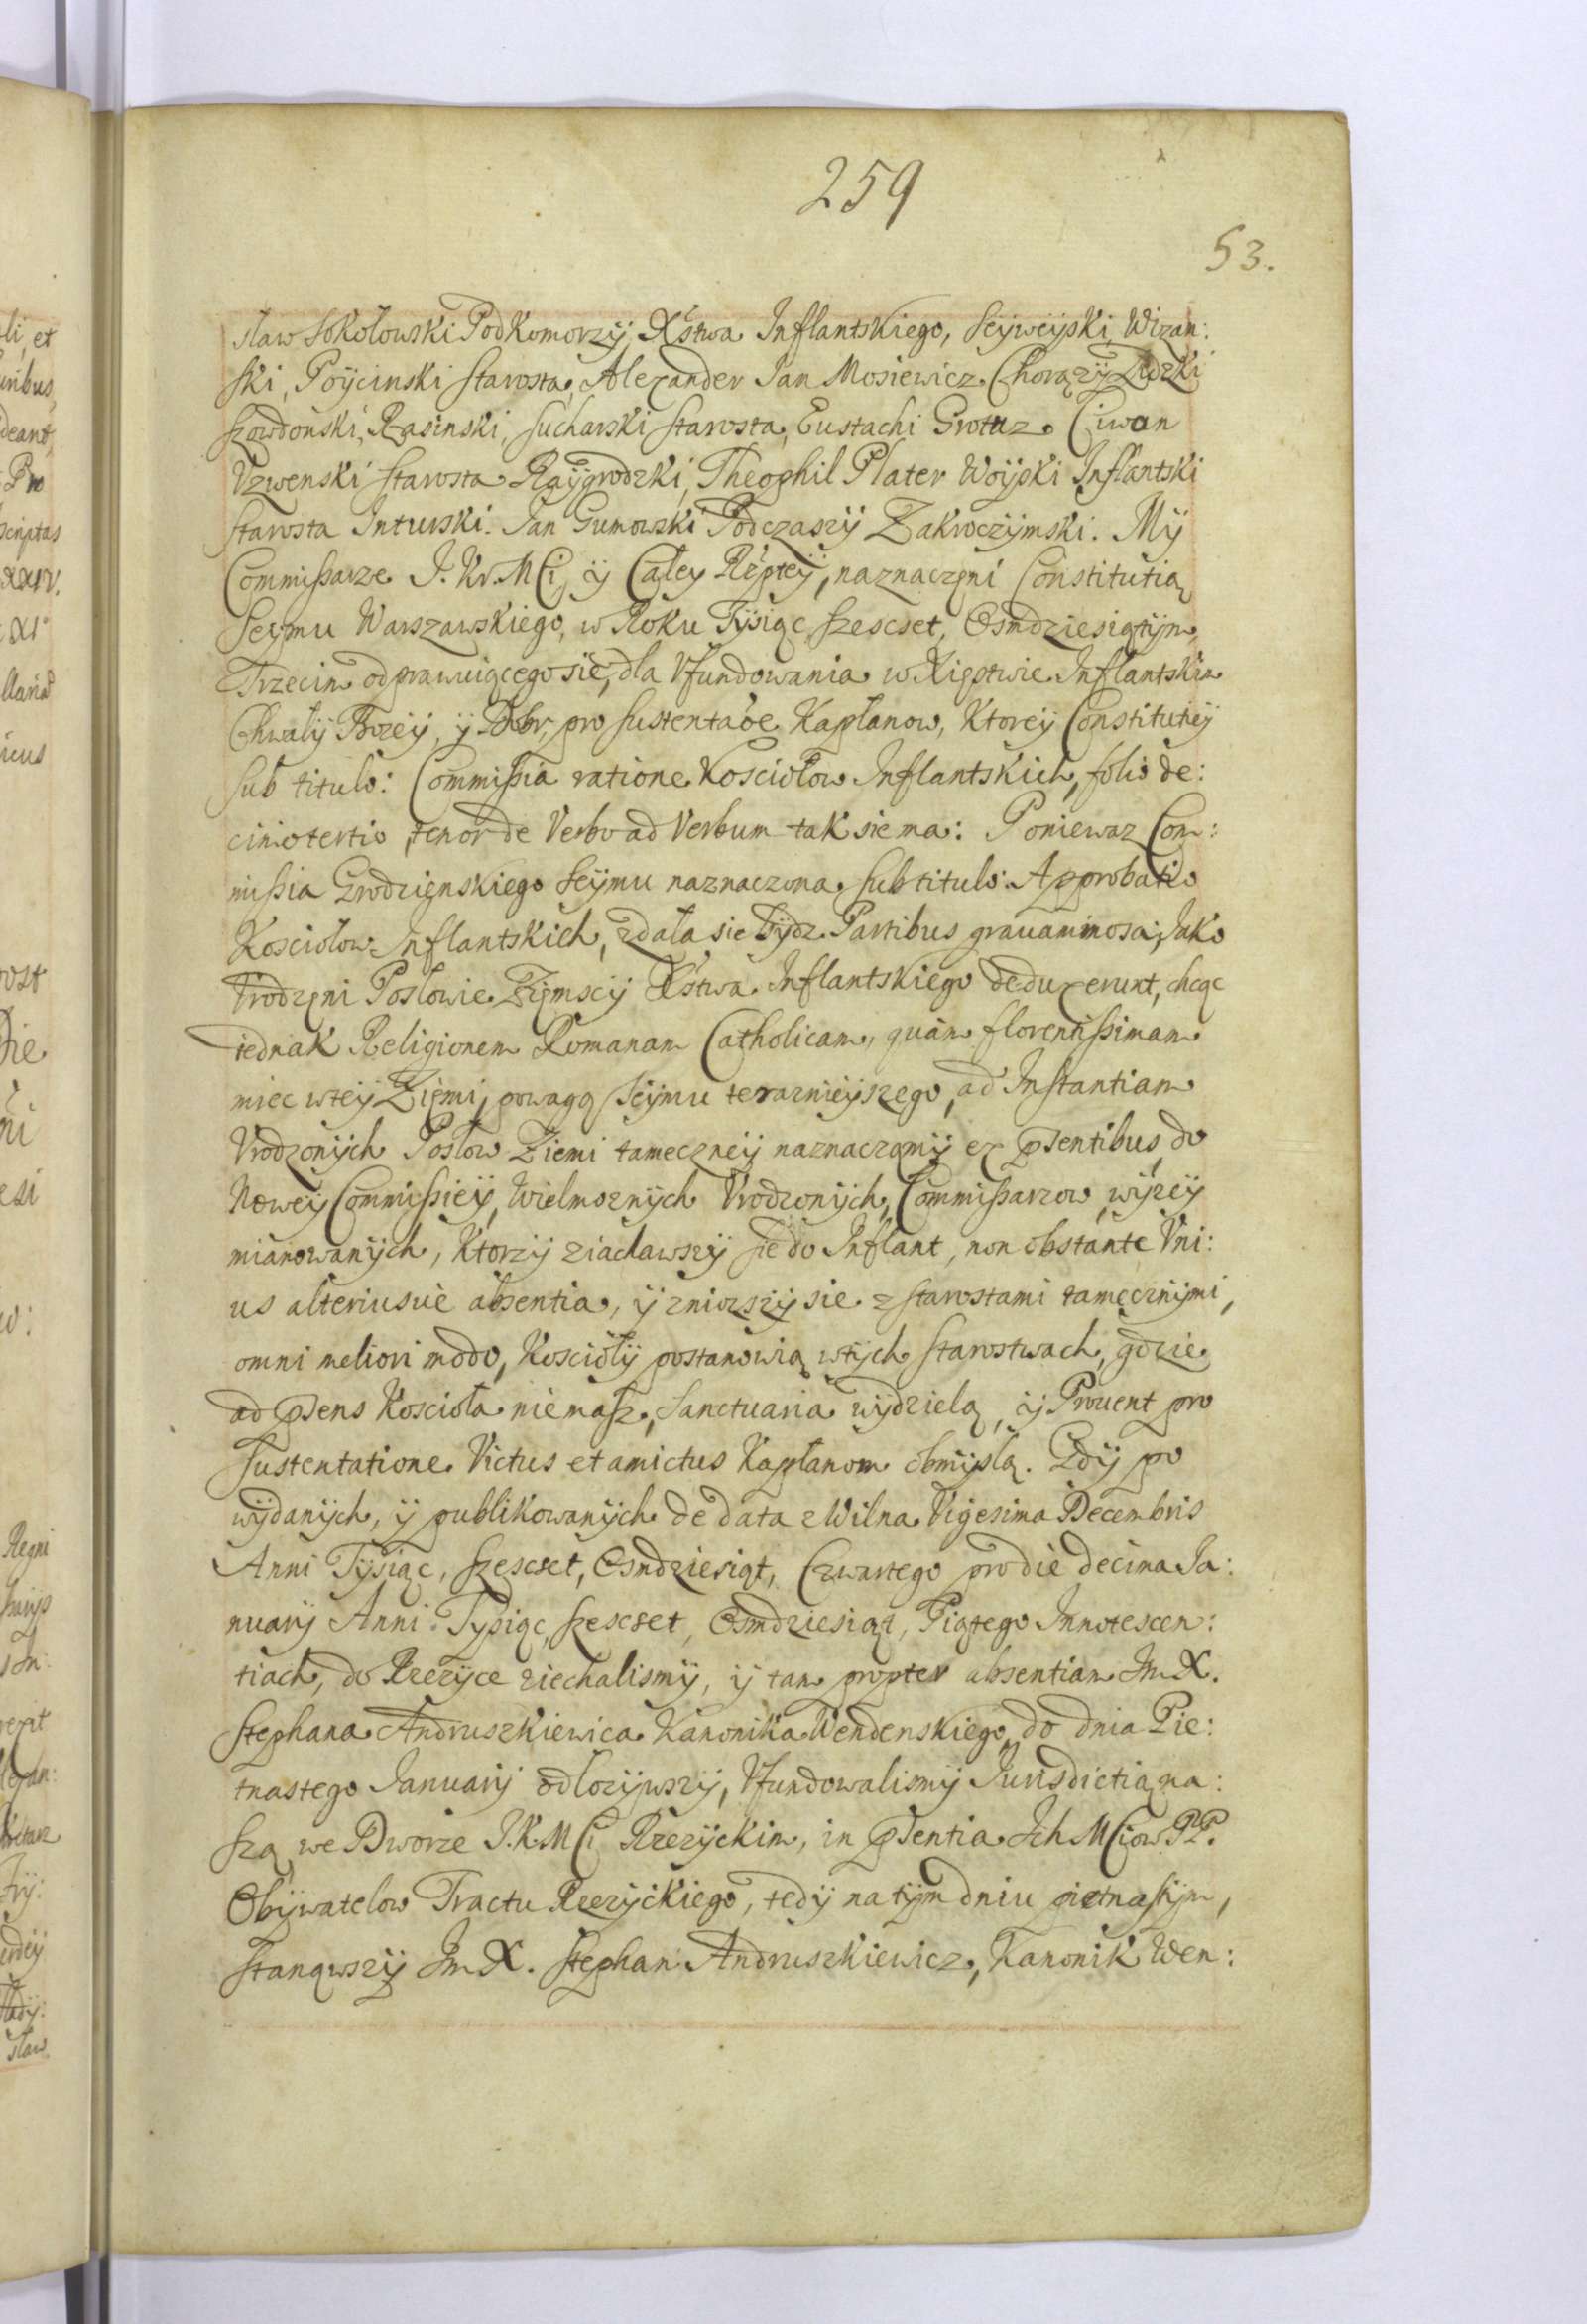 259
53.
sław Sokołowski Podkomorzÿ, Xstwa Inflantskiego, Seÿweÿski, Wizan:
ski, Poÿcinski starosta, Alexander Jan Mosiewicz Chorązÿ Lidzki
Szowdonski, Rasinski, Sucharski starosta, Eustachi Grotuz Ciwon
Vzwenski starosta Raÿgrodzki, Theophil Plater Woÿski Inflantski
starosta Inturski. Jan Gumowski Podczaszÿ Zakroczÿmski. Mÿ
Commissarze J. Kr. MCi ÿ Całey Rzptey, naznaczęni Constitutią
Seÿmu Warszawskiego, w Roku Tÿsiąc Szescset, Osmdziesiątÿm,
Trzecim odprawuiącego się, dla Vfundowania w Xięstwie Inflantskim
Chwalÿ Bozeÿ, ÿ Dobr, pro sustentaoe Kapłanow, Ktoreÿ Constitutieÿ
sub titulo: Commissia ratione Kosciołow Inflantskich, folio de:
cimotertio, tenor de Verbo ad Verbum tak sie ma: Poniewaz Com:
missia Grodzięnskiego Seÿmu naznaczona sub titulo: Approbatio
Kosciołow Inflantskich, zdała sie bÿdz Partibus grauaminosa, Jako
Vrodzęni Posłowie Zięmscÿ Xstwa Inflantskiego deduxerunt, chcąc
iednak Religionem Romanam Catholicam, quàm florentissimam
miec w teÿ Zięmi, powagą Seÿmu terazniejszego, ad Instantiam
Vrodzonÿch Posłow Ziemi tameczneÿ naznaczamÿ ex psentibus do
Noweÿ Commissieÿ, Wielmoznÿch Vrodzonÿch, Commissarzow, wÿzeÿ
mianowanÿch, Ktorzÿ ziachawszÿ sie do Inflant, non obstante Vni:
us alteriusue absentia, ÿ zniozszÿ sie z starostami tamecznÿmi,
omni meliori modo, Kosciołÿ postanowią w tÿch starostwach, gdzie
ad psens Koscioła niemasz, Sanctuaria wÿdzielą, ÿ Prouent pro
sustentatione Victus et amictus Kapłanom obmÿslą. Gdÿ po
wÿdanÿch, ÿ publikowanÿch de data z Wilna Vigesima Decembris
Anni Tÿsiąc, Szescset, Osmdziesiąt, Czwartego pro die decima Ja:
nuarÿ Anni Tÿsiąc, Szescset, Osmdziesiąt, Piątego Innotescen:
tiach, do Rzezÿce ziechalismÿ, ÿ tam propter absentiam Jm X.
Stephana Andruszkiewica Kanonika Wendenskiego, do dnia Pie:
tnastego Januarÿ odlozÿwszÿ, Vfundowalismÿ Jurisdictią na:
szą we Dworze J.K.MCi Rzezÿckim, in psentia Ich MCiow PP.
Obÿwatelow Tractu Rzezÿckiego, tedÿ na tÿm dniu pietnastÿm,
stanąwszÿ Jm X. Stephan Andruszkiewicz, Kanonik Wen: